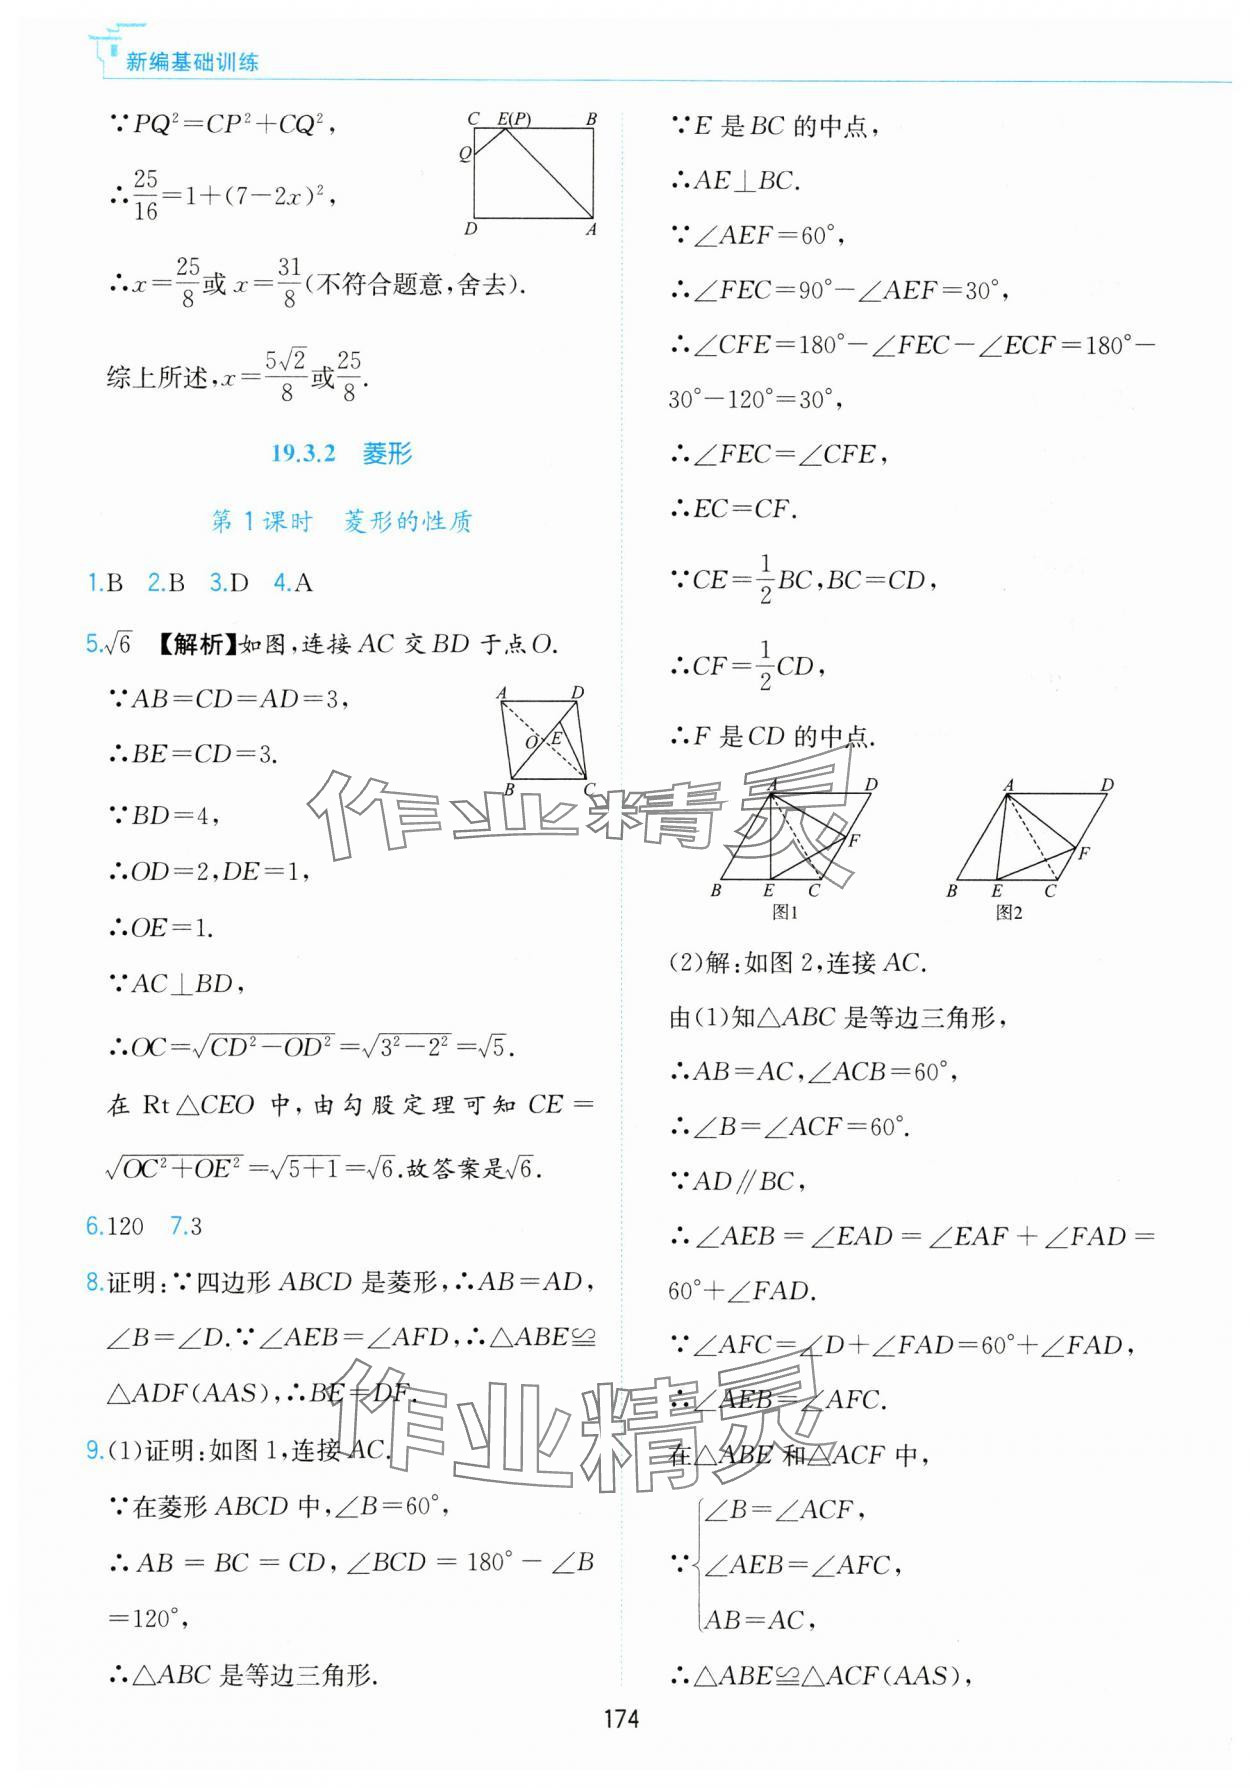 新编基础训练
∵PQ²=CP²+CQ²,
C E(P) B
Q
D A
∴25/16=1+(7-2x)²,
∴x=25/8或x=31/8(不符合题意,舍去).
综上所述,x=5√2/8或25/8.
19.3.2 菱形
第1课时 菱形的性质
1.B 2.B 3.D 4.A
5.√6 【解析】如图,连接AC交BD于点O.
∵AB=CD=AD=3,
∴BE=CD=3.
∵BD=4,
∴OD=2,DE=1,
∴OE=1.
∵AC⊥BD,
A D
O E
B C
∴OC=√(CD²-OD²)=√(3²-2²)=√5.
在Rt△CEO中,由勾股定理可知CE=
√(OC²+OE²)=√(5+1)=√6.故答案是√6.
6.120 7.3
8.证明:∵四边形ABCD是菱形,∴AB=AD,
∠B=∠D.∵∠AEB=∠AFD,∴△ABE≌
△ADF(AAS),∴BE=DF.
9.(1)证明:如图1,连接AC.
∵在菱形ABCD中,∠B=60°,
∴AB=BC=CD,∠BCD=180°-∠B
=120°,
∴△ABC是等边三角形.
∵E是BC的中点,
∴AE⊥BC.
∵∠AEF=60°,
∴∠FEC=90°-∠AEF=30°,
∴∠CFE=180°-∠FEC-∠ECF=180°-
30°-120°=30°,
∴∠FEC=∠CFE,
∴EC=CF.
∵CE=1/2BC,BC=CD,
∴CF=1/2CD,
∴F是CD的中点.
A D
F
B E C
图1
A D
F
B E C
图2
(2)解:如图2,连接AC.
由(1)知△ABC是等边三角形,
∴AB=AC,∠ACB=60°,
∴∠B=∠ACF=60°.
∵AD∥BC,
∴∠AEB=∠EAD=∠EAF+∠FAD=
60°+∠FAD.
∵∠AFC=∠D+∠FAD=60°+∠FAD,
∴∠AEB=∠AFC.
在△ABE和△ACF中,
∠B=∠ACF,
∵{∠AEB=∠AFC,
AB=AC,
∴△ABE≌△ACF(AAS),
174
作业精灵
作业精灵